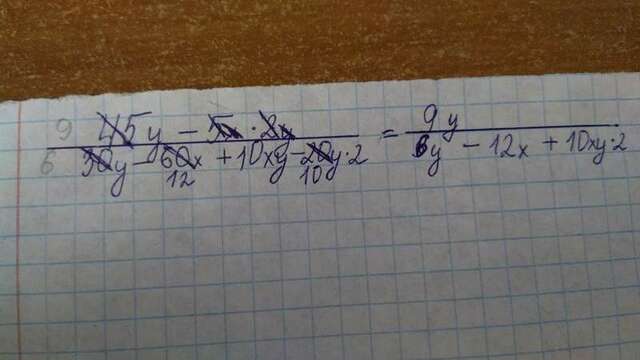 9 45y - 5x · 2y = 9y
6 30y - 60x + 10xy - 20y·2 6y - 12x + 10xy·2
12 10